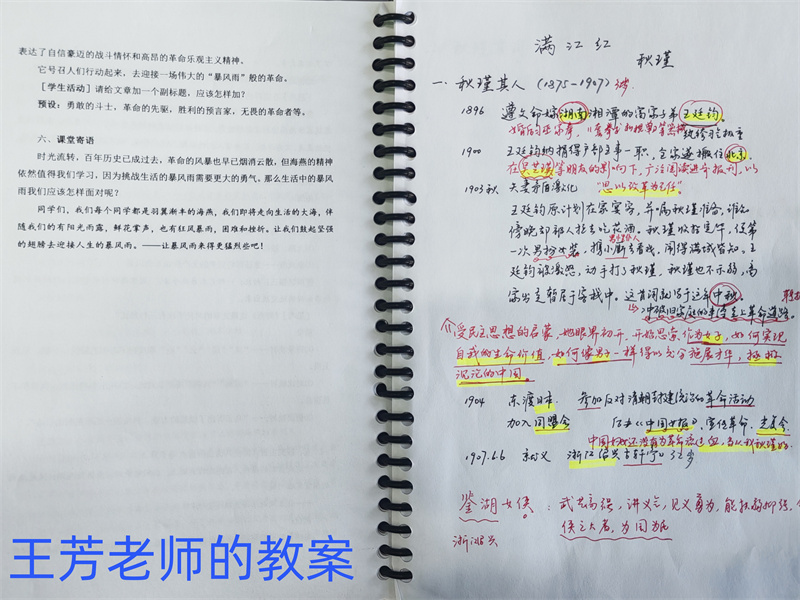 表达了自信豪迈的战斗情怀和高昂的革命乐观主义精神。
它号召人们行动起来，去迎接一场伟大的“暴风雨”般的革命。
[学生活动] 请给文章加一个副标题，应该怎样加？
预设：勇敢的斗士，革命的先驱，胜利的预言家，无畏的革命者等。
六、课堂寄语
时光流转，百年历史已成过去，革命的风暴也早已烟消云散，但海燕的精神
依然值得我们学习，因为挑战生活的暴风雨需要更大的勇气。那么生活中的暴风
雨我们应该怎样面对呢？
同学们，我们每个同学都是羽翼渐丰的海燕，我们即将走向生活的大海，伴
随我们的有阳光雨露，鲜花掌声，也有狂风暴雨，困难和挫折。让我们鼓起坚强
的翅膀去迎接人生的暴风雨。——让暴风雨来得更猛烈些吧！
王芳老师的教案
满江红
秋瑾
一、秋瑾其人（1875-1907）
1896 遵父命嫁湖南湘潭的富家子弟王廷钧。
1900 王廷钧纳捐得户部主事一职，全家遂搬住北京
在吴芝瑛等朋友的影响下，广泛阅读进步报刊，以
1903秋 夫妻矛盾激化 “思以改革为己任”
王廷钧原计划在家宴客，并嘱秋瑾准备，谁知
傍晚却被人拉去吃花酒。秋瑾收拾完毕，便第
一次男扮女装，携小厮去看戏，闹得满城皆知，王
廷钧很恼怒，动手打了秋瑾，秋瑾也不示弱，离
家出走暂居于客栈中。这首词就写于这年中秋。
冲破旧家庭的束缚走上革命道路。
受民主思想的启蒙，她眼界初开，开始思索，作为女子，如何实现
自我的生命价值，如何像男子一样得以充分施展才华，拯救
沉沦的中国。
1904 东渡日本。 参加反对清朝封建统治的革命活动
加入同盟会 后办《中国女报》，宣传革命，
1907.6.6 就义 浙江绍兴古轩亭口
鉴湖女侠。：武艺高强，讲义气，见义勇为，能扶弱抑强，
侠之大者，为国为民
浙江绍兴